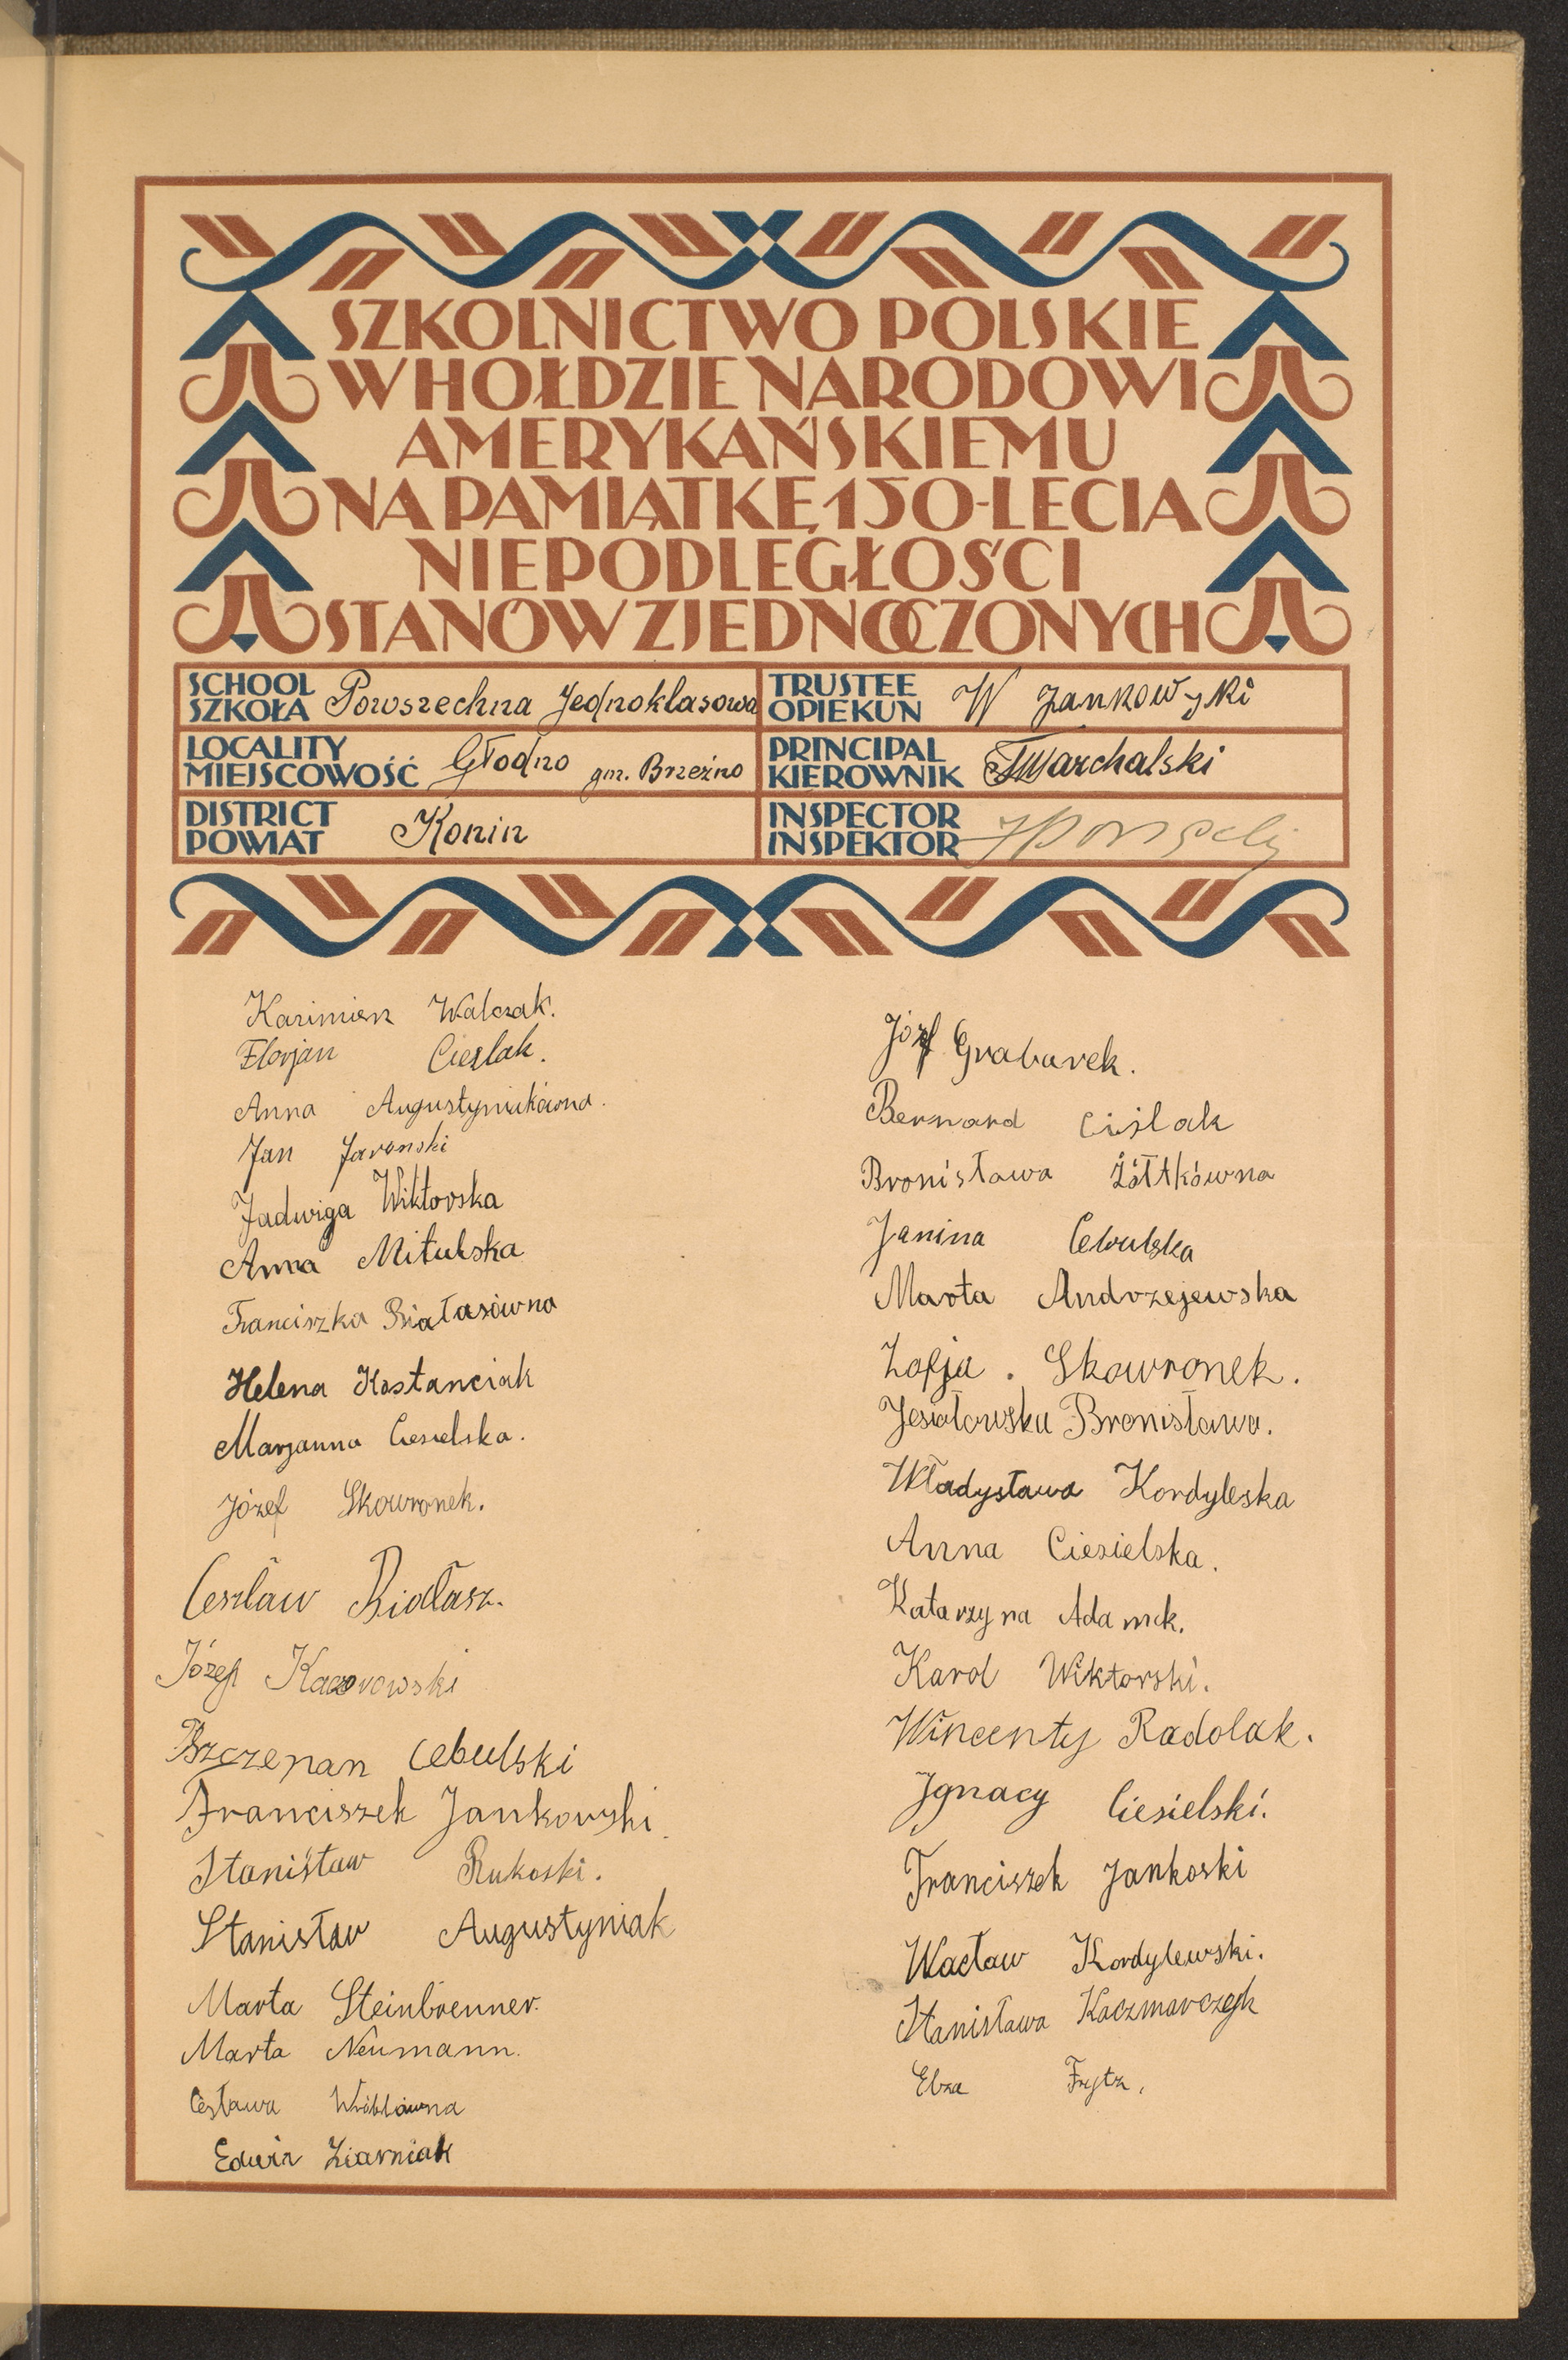 SZKOLNICTWO POLSKIE
W HOŁDZIE NARODOWI
AMERYKAŃSKIEMU
NA PAMIĄTKĘ 150-LECIA
NIEPODLEGŁOŚCI
STANÓW ZJEDNOCZONYCH
SCHOOL
SZKOŁA Powszechna Jednoklasowa
LOCALITY
MIEJSCOWOŚĆ Głodno gm. Brzeźno
DISTRICT
POWIAT Konin
TRUSTEE
OPIEKUN W Jankowski
PRINCIPAL
KIEROWNIK Marchalski
INSPECTOR
INSPEKTOR
Kazimierz Walczak.
Florjan Cieślak.
Anna Augustyniakówna.
Jan Jaronski
Jadwiga Wiktorska
Anna Mitulska
Franciszka Białasówna
Helena Kostanciak
Marjanna Ciesielska.
Józef Skowronek.
Czesław Białasz.
Józef Kaczorowski
Szczepan Cebulski
Franciszek Jankowski.
Stanisław Rukoski.
Stanisław Augustyniak
Marta Steinbrenner.
Marta Neumann.
Cesława Wróblówna
Edwin Ziarniak
Józf Grabarek.
Bernard Ciślak
Bronisława Żółtkówna
Janina Cebulska
Marta Andrzejewska
Zofja. Skowronek.
Jesiołowska Bronisława.
Władysława Kordyleska
Anna Ciesielska.
Katarzyna Adamek.
Karol Wiktorski.
Wincenty Radolak.
Jgnacy Ciesielski.
Franciszek Jankoski
Wacław Kordylewski.
Stanisława Kaczmarczyk
Elza Frytz.